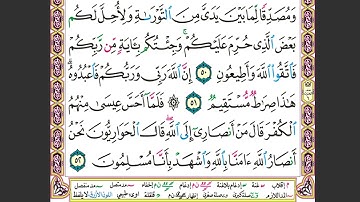 وَمُصَدِّقًا لِّمَا بَيْنَ يَدَيَّ مِنَ ٱلتَّوْرَىٰةِ وَلِأُحِلَّ لَكُم
بَعْضَ ٱلَّذِى حُرِّمَ عَلَيْكُمْ ۚ وَجِئْتُكُم بِـَٔايَةٍ مِّن رَّبِّكُمْ
فَٱتَّقُوا۟ ٱللَّهَ وَأَطِيعُونِ ۝٥٠ إِنَّ ٱللَّهَ رَبِّى وَرَبُّكُمْ فَٱعْبُدُوهُ ۗ
هَٰذَا صِرَٰطٌ مُّسْتَقِيمٌ ۝٥١ ۞ فَلَمَّآ أَحَسَّ عِيسَىٰ مِنْهُمُ
ٱلْكُفْرَ قَالَ مَنْ أَنصَارِىٓ إِلَى ٱللَّهِ ۖ قَالَ ٱلْحَوَارِيُّونَ نَحْنُ
أَنصَارُ ٱللَّهِ ءَامَنَّا بِٱللَّهِ وَٱشْهَدْ بِأَنَّا مُسْلِمُونَ ۝٥٢